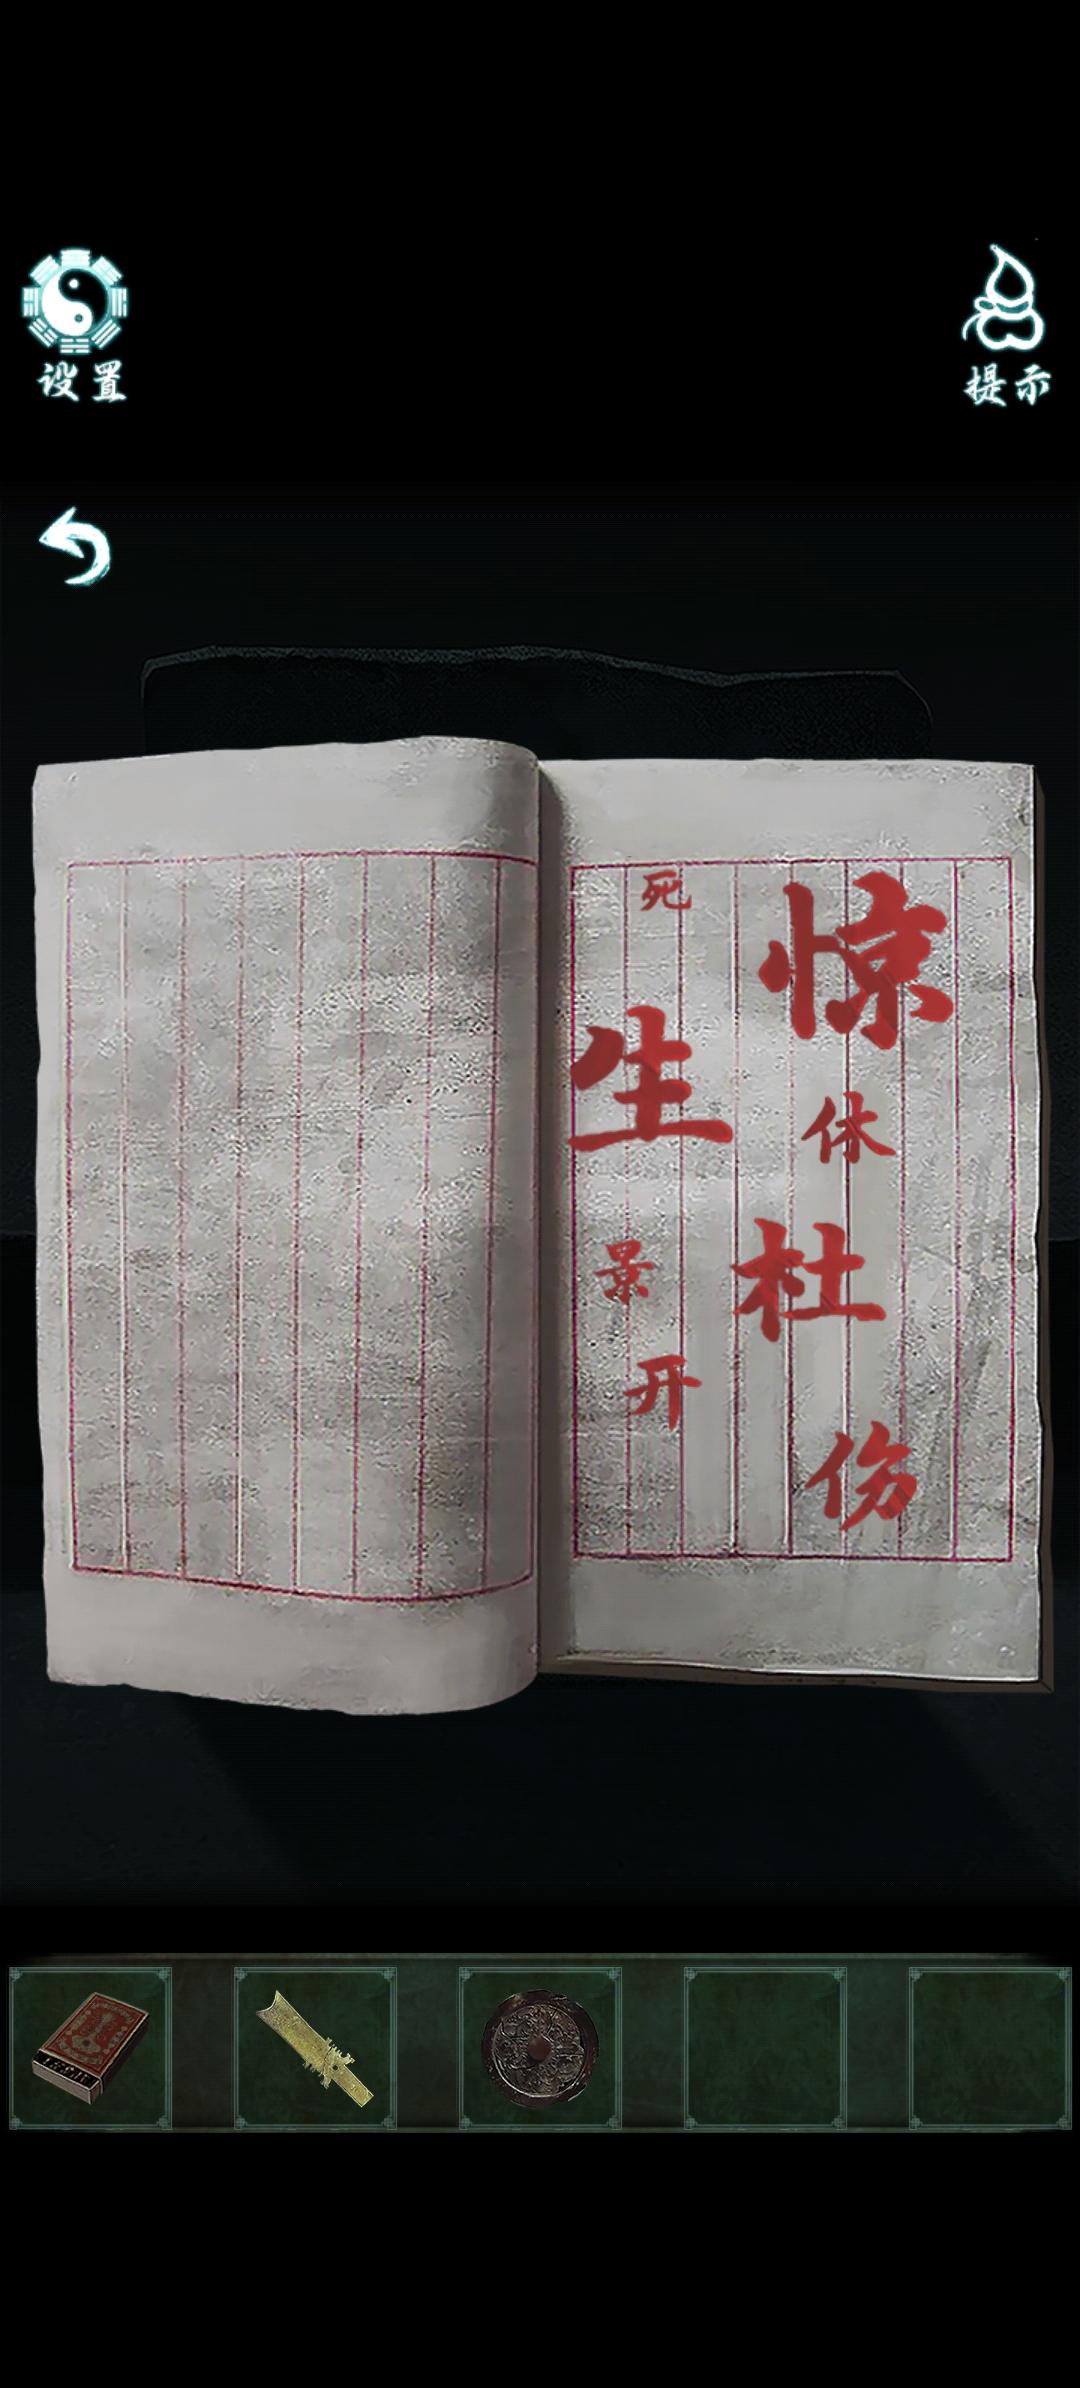 设置
提示
惊
休
杜
伤
死
生
景
开